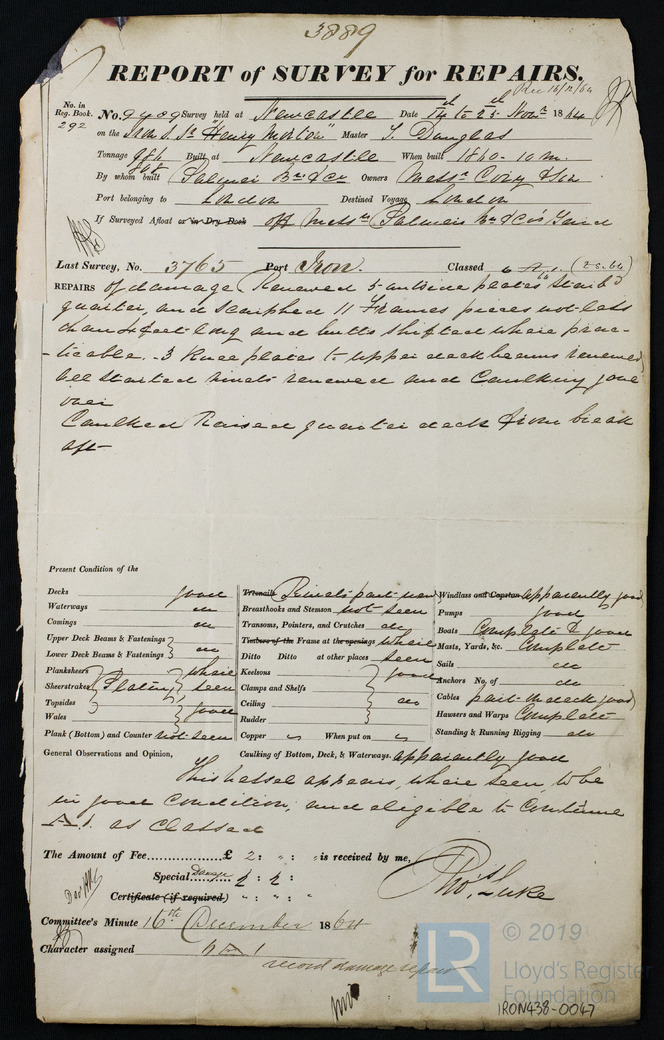 3889
REPORT of SURVEY for REPAIRS.
Rec 16/12/64
No. in Reg. Book. 292
No. 9709 Survey held at Newcastle Date 14th to 25th Novr 1864
on the Iron S. Sr "Henry Morton" Master T. Douglas
Tonnage 986 Built at Newcastle When built 1860 - 10 m.
By whom built Palmer Br & Co Owners Messrs Cory & Son
Port belonging to London Destined Voyage London
If Surveyed Afloat or in Dry Dock off Messrs Palmers Br & Co's Yard
Last Survey, No. 3765 Port Iron. Classed 6 A 1. (2S.64)
REPAIRS of damage (Renewed 5 outside plates Starbd
quarter, and scarphed 11 Frames pieces not less
than 4 feet long and butts shifted where prac-
-ticable. 3 Knee plates to upper deck beams renewed
all started rivets renewed and Caulking gone
over
Caulked Raised quarter deck from break
aft
Present Condition of the
Decks good
Waterways do
Comings do
Upper Deck Beams & Fastenings
Lower Deck Beams & Fastenings do
Planksheers where
Sheerstrakes Plating seen
Topsides
Wales good
Plank (Bottom) and Counter not seen
Treenails Rivets part new
Breasthooks and Stemson not seen
Transoms, Pointers, and Crutches do
Timbers of the Frame at the openings where
Ditto Ditto at other places seen
Keelsons good
Clamps and Shelfs
Ceiling do
Rudder
Copper " When put on "
Windlass and Capstan apparently good
Pumps good
Boats Complete & good
Masts, Yards, &c. Complete
Sails do
Anchors No. of do
Cables part on deck good
Hawsers and Warps Complete
Standing & Running Rigging do
General Observations and Opinion, Caulking of Bottom, Deck, & Waterways. apparently good
This vessel appears, where seen, to be
in good Condition, and eligible to Continue
A.1. as Classed
The Amount of Fee £ 2: ": " is received by me,
Special Damage 2: 2:
Certificate (if required) " : " : "
Thos Luke
Committee's Minute 16th December 1864
Character assigned 6 A 1
record damage repair
LR © 2019
Lloyd's Register
Foundation
IRON438-0047